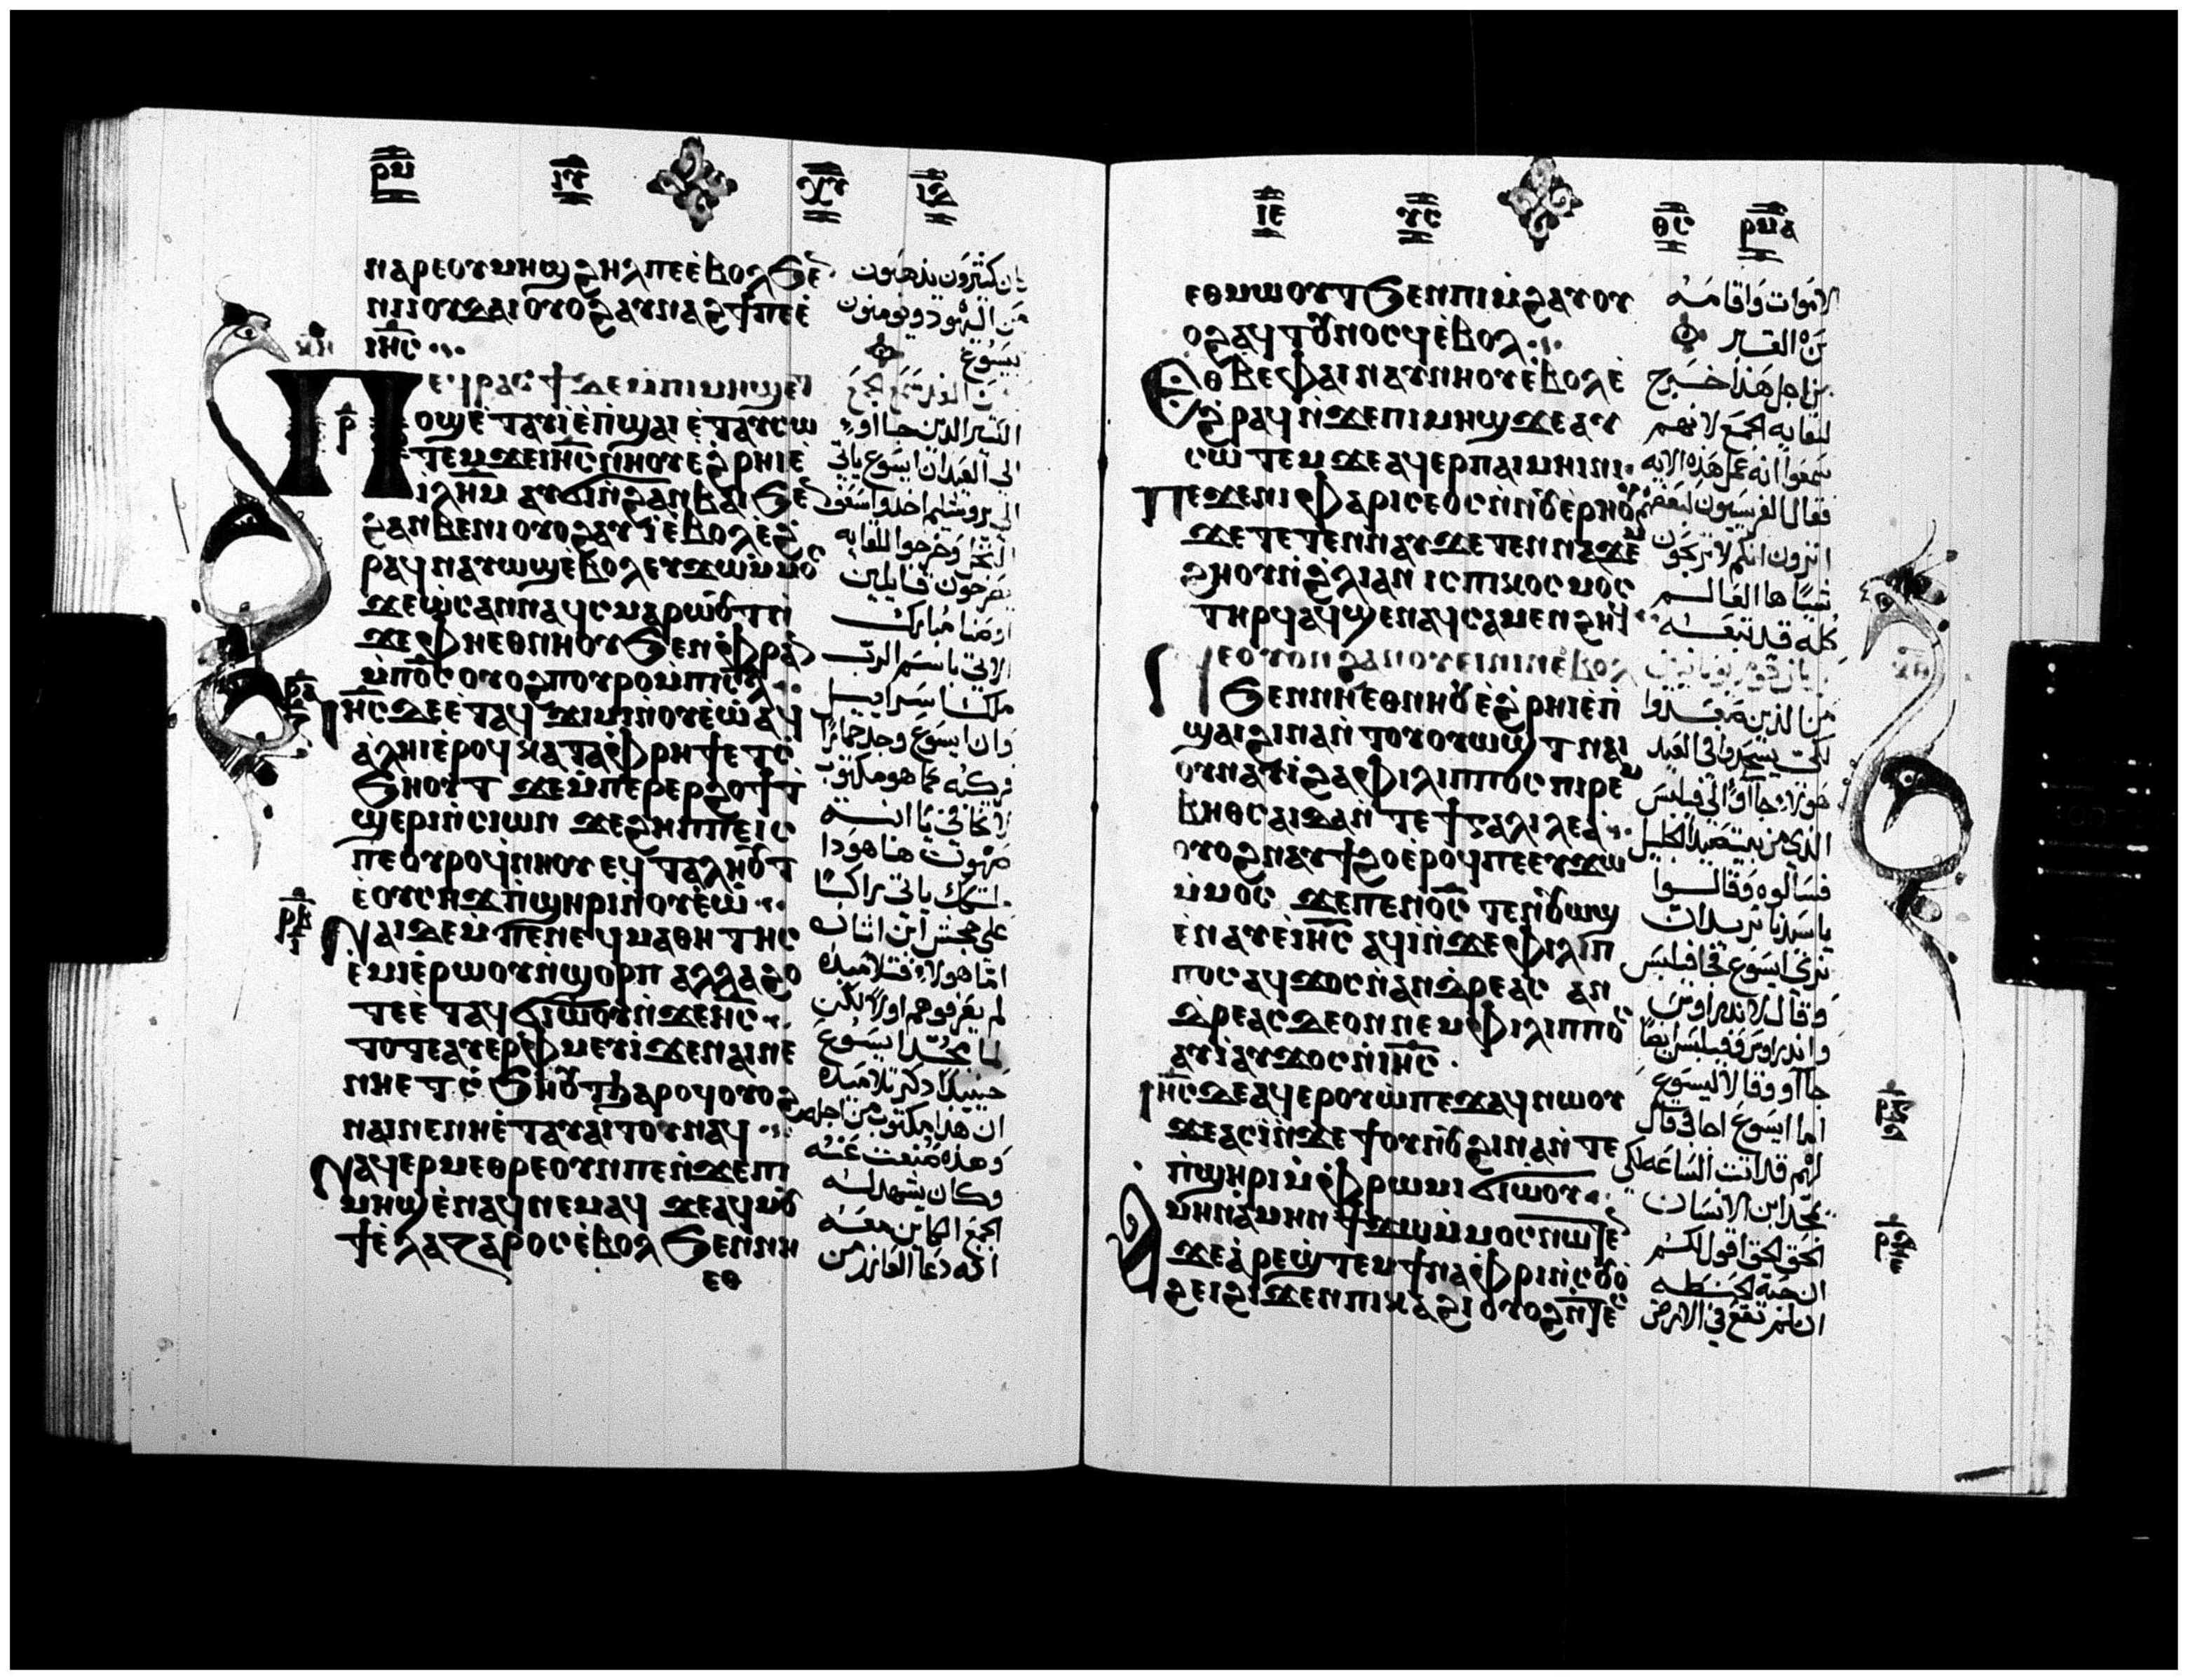 ⲣⲙ ⲓⲅ
ⲛⲁⲣⲉⲟⲩⲙⲏϣ ϩⲏⲗ ⲡⲉ ⲉ̀ⲃⲟⲗ ϧⲉ
ⲛⲓⲓⲟⲩⲇⲁⲓ ⲟⲩⲟϩ ⲁⲩⲛⲁϩϯ ⲡⲉ ⲉ̀
ⲓⲏ̅ⲥ̅
ⲡⲉϥⲣⲁⲥϯ ⲇⲉ ⲙ̀ⲡⲓⲙⲏϣ ⲉⲧ
ⲟϣ ⲉ̀ⲧⲁⲩⲓ̀ ⲉ̀ⲡ̀ϣⲁⲓ ⲉ̀ⲧⲁⲩⲥⲱ
ⲧⲉⲙ ϫⲉ ⲓⲏ̅ⲥ̅ ⲛ̀ⲛⲏⲟⲩ ⲉ̀ϩ̀ⲣⲏⲓ ⲉ̀
ⲓ̅ⲗ̅ⲏ̅ⲙ̅ ⲁⲩϭⲓ ⲛ̀ϩⲁⲛⲃⲁⲓ ϧⲉ
ϩⲁⲛⲃⲉⲛⲓ ⲟⲩⲟϩ ⲁⲩⲓ̀ ⲉ̀ⲃⲟⲗ ⲉ̀ϩ̀
ⲣⲁϥ ⲛⲁⲩⲱϣ ⲉ̀ⲃⲟⲗ ⲉⲩϫⲱ ⲙ̀ⲙⲟⲥ
ϫⲉ ⲱ̀ⲥⲁⲛⲛⲁ ϥ̀ⲥⲙⲁⲣⲱⲟⲩⲧ ⲛ̀
ϫⲉ ⲫⲏⲉⲑⲛⲏⲟⲩ ϧⲉⲛ ⲫ̀ⲣⲁ
ⲙ̀ⲡⲟ̅ⲥ̅ ⲟⲩⲟϩ ⲡⲟⲩⲣⲟ ⲙ̀ⲡⲓⲥ̅ⲗ̅
ⲓⲏ̅ⲥ̅ ⲇⲉ ⲉ̀ⲧⲁϥ ϫⲓⲙⲓ ⲛ̀ⲟⲩⲉ̀ⲱ̀ ⲁϥ
ⲁ̀ⲗⲏⲓ ⲉ̀ⲣⲟϥ ⲕⲁⲧⲁ ⲫ̀ⲣⲏϯ ⲉⲧⲥ̀
ϧⲏⲟⲩⲧ ϫⲉ ⲙ̀ⲡⲉⲣⲉⲣϩⲟϯ ⲧ
ϣⲉⲣⲓ ⲛ̀ⲥⲓⲱⲛ ϫⲉ ϩⲏⲡⲡⲉ ⲓⲥ
ⲡⲉⲟⲩⲣⲟ ϥ̀ⲛⲏⲟⲩ ⲉϥⲧⲁⲗⲏⲟⲩⲧ
ⲉ̀ⲟⲩⲥⲏϫ ⲛ̀ϣⲏⲣⲓ ⲛ̀ⲟⲩⲉ̀ⲱ̀
ⲛⲁⲓ ⲇⲉ ⲙ̀ⲡⲉ ⲛⲉϥⲙⲁⲑⲏⲧⲏⲥ
ⲉ̀ⲙⲓ ⲉ̀ⲣⲱⲟⲩ ⲛ̀ϣⲟⲣⲡ ⲁⲗⲗⲁ ϩⲟ
ⲧⲉ ⲉ̀ⲧⲁϥϭⲓⲱⲟⲩ ⲛ̀ϫⲉ ⲓⲏ̅ⲥ̅
ⲧⲟⲧⲉ ⲁⲩⲉⲣⲫ̀ⲙⲉⲩⲓ̀ ϫⲉ ⲛⲁⲓ ⲛⲉ
ⲛⲏⲉⲧⲥ̀ϧⲏⲟⲩⲧ ϧⲁⲣⲟϥ ⲟⲩⲟϩ
ⲛⲁⲓ ⲛⲉ ⲛⲏⲉ̀ⲧⲁⲩⲁⲓⲧⲟⲩ ⲛⲁϥ
ⲛⲁϥⲉⲣⲙⲉⲑⲣⲉ ⲟⲩⲛ ⲡⲉ ⲛ̀ϫⲉ ⲡⲓ
ⲙⲏϣ ⲉ̀ⲛⲁϥ ⲛⲉⲙⲁϥ ϫⲉ ⲁϥⲙⲟⲩ
ϯ ⲉ̀ⲗⲁⲍⲁⲣⲟⲥ ⲉ̀ⲃⲟⲗ ϧⲉⲛ ⲛⲏ
ⲉⲑ
ان كثيرون يذهبون
من اليهود ويومنون
بيسوع
الكثير الذين جااو
الي العيد ان ايسوع ياتي
الي يروشليم اخذوا سعوف
النخل وخرجوا للقايه
يصرخون قايلين
اوصنا مبارك
الاتي باسم الرب
ملك اسراييل
وان ايسوع وجد حمارا
فركبه كما هو مكتوب
لا تخافي يا ابنة
صهيون هنا هوذا
ملكك ياتي راكبا
علي جحش ابن اتان
اما هولاء فتلاميذه
لم يعرفوهم اولا لكن
لما تمجد ايسوع
حينيذ ذكر تلاميذه
ان هذا مكتوب من اجله
وهذه صنعت عنه
وكان يشهد له
الجمع الكاين معه
انه دعا العازر من
ⲓⲉ ⲣⲙⲁ
ⲉⲑⲙⲱⲟⲩⲧ ϧⲉⲛ ⲡⲓⲙ̀ϩⲁⲩ ⲟⲩ
ⲟϩ ⲁϥⲧⲟⲩⲛⲟⲥϥ ⲉ̀ⲃⲟⲗ
ⲉⲑⲃⲉ ⲫⲁⲓ ⲛⲁⲩⲛⲏⲟⲩ ⲉ̀ⲃⲟⲗ ⲉ̀
ϩ̀ⲣⲁϥ ⲛ̀ϫⲉ ⲡⲓⲙⲏϣ ϫⲉ ⲁⲩ
ⲥⲱⲧⲉⲙ ϫⲉ ⲁϥⲉⲣ ⲡⲁⲓⲙⲏⲓⲛⲓ
ⲡⲉϫⲉ ⲛⲓⲫⲁⲣⲓⲥⲉⲟⲥ ⲛ̀ⲛⲟⲩⲉ̀ⲣⲏⲟⲩ
ϫⲉ ⲧⲉⲧⲉⲛⲛⲁⲩ ϫⲉ ⲧⲉⲛⲛⲁϫⲉ
ϩⲏⲟⲩ ⲛ̀ϩ̀ⲗⲓ ⲁⲛ ⲓⲥ ⲡⲓⲕⲟⲥⲙⲟⲥ
ⲧⲏⲣϥ ⲁϥϣⲉⲛⲁϥ ⲥⲁⲙⲉⲛϩⲏϥ
ⲛⲉⲟⲩⲟⲛ ϩⲁⲛⲟⲩⲉⲓⲛⲓⲛ ⲉ̀ⲃⲟⲗ
ϧⲉⲛ ⲛⲏⲉⲑⲛⲏⲟⲩ ⲉ̀ϩ̀ⲣⲏⲓ ⲉ̀ⲡ̀
ϣⲁⲓ ϩⲓⲛⲁ ⲛ̀ⲧⲟⲩⲟⲩⲱϣⲧ ⲛⲁⲓ
ⲟⲩⲛ ⲁⲩⲓ̀ ϩⲁ ⲫⲓⲗⲓⲡⲡⲟⲥ ⲡⲓⲣⲉⲙ
ⲃⲏⲑⲥⲁⲓⲇⲁ ⲛ̀ⲧⲉ ϯⲅⲁⲗⲓⲗⲉⲁ
ⲟⲩⲟϩ ⲛⲁⲩϯϩⲟ ⲉ̀ⲣⲟϥ ⲡⲉ ⲉⲩϫⲱ
ⲙ̀ⲙⲟⲥ ϫⲉ ⲡⲉⲛⲟ̅ⲥ̅ ⲧⲉⲛⲟⲩⲱϣ
ⲉ̀ⲛⲁⲩ ⲉ̀ⲓⲏ̅ⲥ̅ ⲁϥⲓ̀ ⲛ̀ϫⲉ ⲫⲓⲗⲓⲡ
ⲡⲟⲥ ⲁϥϫⲟⲥ ⲛ̀ⲁⲛⲇⲣⲉⲁⲥ ⲁⲛ
ⲇⲣⲉⲁⲥ ⲇⲉ ⲟⲛ ⲛⲉⲙ ⲫⲓⲗⲓⲡⲡⲟⲥ
ⲁⲩⲓ̀ ⲁⲩϫⲟⲥ ⲛ̀ⲓⲏ̅ⲥ̅
ⲓⲏ̅ⲥ̅ ⲇⲉ ⲁϥⲉⲣⲟⲩⲱ̀ ⲡⲉϫⲁϥ ⲛⲱⲟⲩ
ϫⲉ ⲁⲥⲓ̀ ⲛ̀ϫⲉ ϯⲟⲩⲛⲟⲩ ϩⲓⲛⲁ ⲛ̀ⲧⲉ
ⲡ̀ϣⲏⲣⲓ ⲙ̀ⲫ̀ⲣⲱⲙⲓ ϭⲓⲱⲟⲩ
ⲁ̀ⲙⲏⲛ ⲁ̀ⲙⲏⲛ ϯϫⲱ ⲙ̀ⲙⲟⲥ ⲛⲱⲧⲉ
ϫⲉ ⲁ̀ⲣⲉϣ̀ⲧⲉⲙ ϯⲛⲁⲫ̀ⲣⲓ ⲛ̀ⲥⲟⲩⲟ̀
ϩⲉⲓ ϩⲓϫⲉⲛ ⲡⲓⲕⲁϩⲓ ⲟⲩⲟϩ ⲛ̀ⲧⲉⲥ
الاموات واقامه
من القبر
من اجل هذا خرج
للقايه الجمع لانهم
سمعوا انه عمل هذه الايه
فقال الفريسيون لبعضهم
اترون انكم لا تربحون
شيا ها العالم
كله قد تبعه
من الذين صعدوا
لكي يسجدوا في العيد
هولاء جااوا الي فيلبس
الذي من بيت صيدا الجليل
فسالوه وقالوا
يا سيدنا نريد ان
نري ايسوع فجا فيلبس
وقال لاندراوس
واندراوس وفيلبس ايضا
جااو وقالا لايسوع
اما ايسوع اجاب قال
لهم قد اتت الساعه لكي
يتمجد ابن الانسان
الحق الحق اقول لكم
ان حبة الحنطه
ان لم تقع في الارض